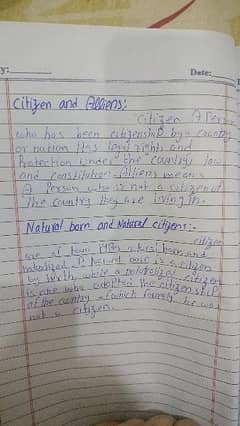 Date:
Citizen and Alliens:
Citizen A Person
who has been citizenship by a country
or nation Has legal rights and
Protection under the country law
and constitution. Alliens means
A Person who is not a citizen of
the country they are living in.
Natural born and Natural citizens:-
citizen
are of two
naturalized. A Natural one is a citizen
by birth while a citizen
is one who adopted the citizenship
of the country of which he was
not a citizen.